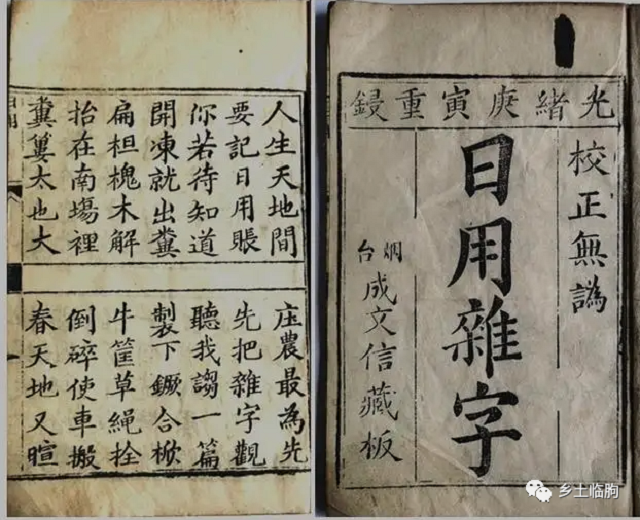 光緒庚寅重鋟
校正無譌
日用雜字
烟台
成文信藏板
人生天地間
庄農最為先
要記日用賬
先把雜字觀
你若待知道
聽我謅一篇
開凍就出糞
製下鐝合杴
扁柦槐木解
牛筐草繩拴
抬在南塲裡
倒碎使車搬
糞蔞太也大
春天地又暄
乡土临朐